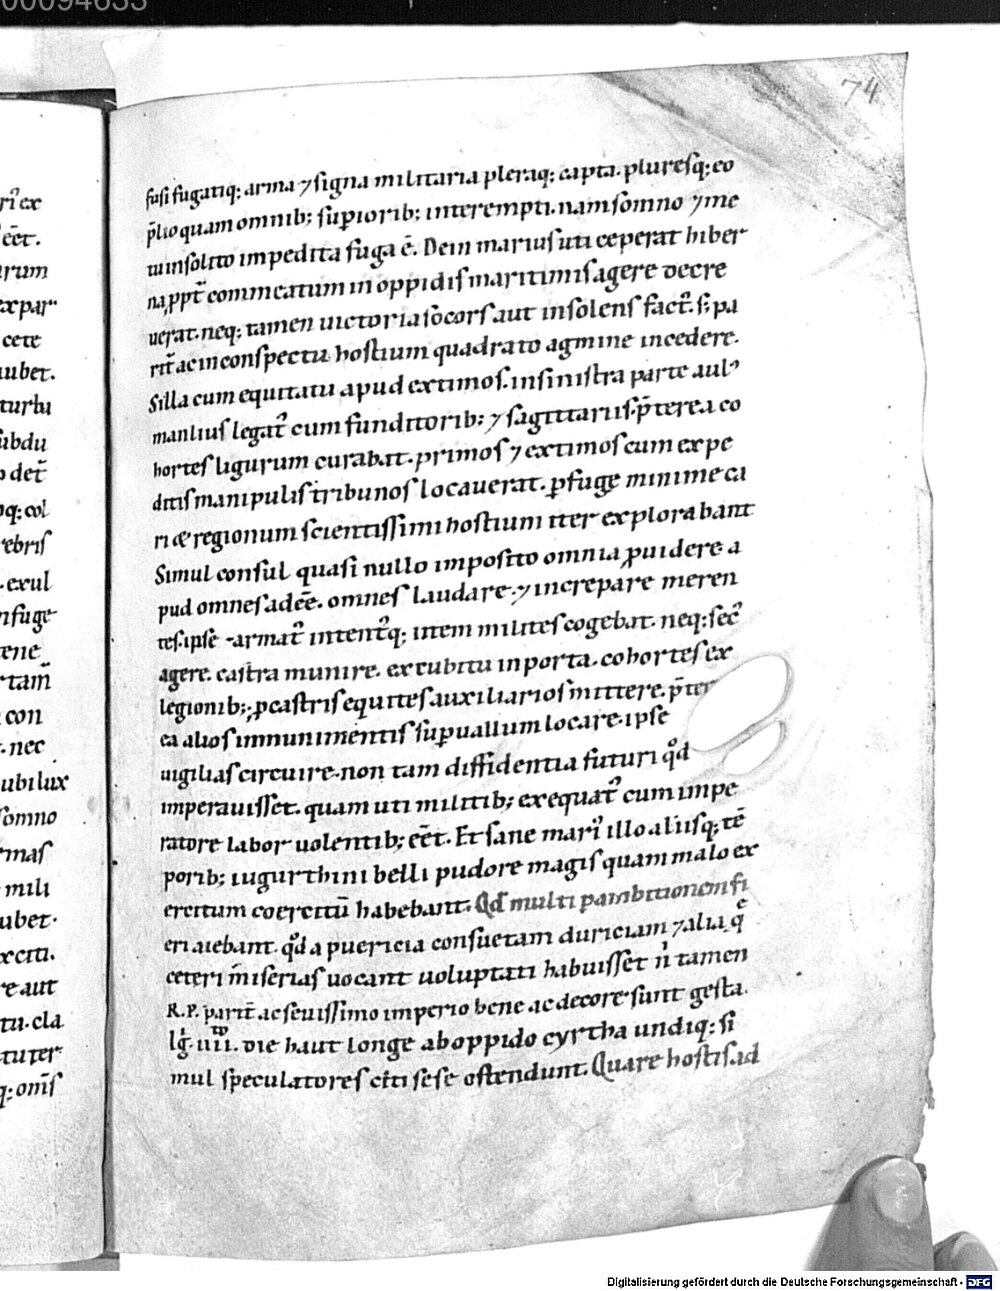 00094633
74
fusi fugatiq; arma ⁊ signa militaria pleraq; capta. pluresq; eo
p̄lio quam omnib; supiorib; interempti. nam somno ⁊ me
tu insolito impedita fuga ē. Dein marius uti ceperat hiber
na ꝓpt̄ commeatum in oppidis maritimis agere decre
uerat. neq; tamen uictoria socors aut insolens fact᷒. s; pa
rit̄ ac in conspectu hostium quadrato agmine incedere.
Silla cum equitatu apud extimos. in sinistra parte aul᷒
manlius legat᷒ cum funditorib; ⁊ sagittariis. p̄terea co
hortes ligurum curabat. primos ⁊ extimos cum expe
ditis manipulis tribunos locauerat. ꝑfuge minime ca
ri & regionum scientissimi hostium iter explorabant
Simul consul quasi nullo imposito omnia ꝓuidere. a
pud omnes adeē. omnes laudare. ⁊ increpare meren
tes. ipse armat᷒ intent᷒q; item milites cogebat. neq; sec᷒
agere. castra munire. excubitu in porta. cohortes ex
legionib; ꝓ castris equites auxiliarios mittere. p̄ter
ea alios in munimentis sup uallum locare. ipse
uigilias circuire. non tam diffidentia futuri qd
imperauisset. quam uti militib; exequat᷒ cum impe
ratore labor uolentib; eēt. Et sane mari᷒ illo aliisq; tē
porib; iugurthini belli pudore magis quam malo ex
ercitum coercitū habebant. Qd multi p ambitionem fi
eri aiebant. qd a puericia consuetam duriciam ⁊ alia q̄
ceteri miserias uocant uoluptati habuisset n tamen
R.P. parit̄ ac seuissimo imperio bene ac decore sunt gesta.
Ig iiii. die haut longe ab oppido cyrtha undiq; si
mul speculatores citi sese ostendunt. Quare hostis ad
Digitalisierung gefördert durch die Deutsche Forschungsgemeinschaft - DFG